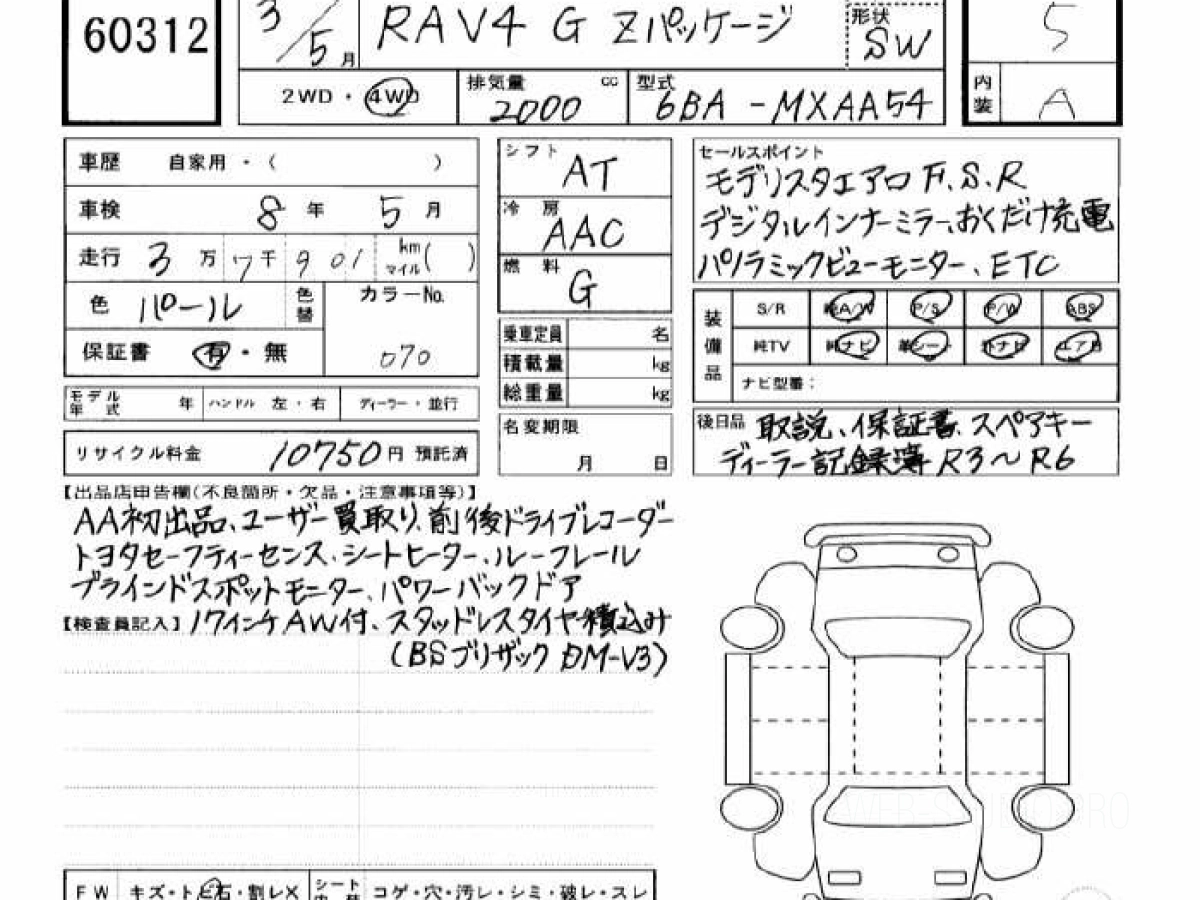 60312
3/5月
RAV4 G Zパッケージ
形状 SW
5
2WD・4WD
排気量 2000 cc
型式 6BA-MXAA54
内装 A
車歴 自家用・( )
車検 8年 5月
走行 3万 7千 901 km マイル( )
色 パール 色替
カラーNo. 070
保証書 有・無
モデル年式 年 ハンドル 左・右 ディーラー・並行
リサイクル料金 10750円 預託済
シフト AT
冷房 AAC
燃料 G
乗車定員 名
積載量 kg
総重量 kg
名変期限
月 日
セールスポイント
モデリスタエアロ F.S.R
デジタルインナーミラー、おくだけ充電
パノラミックビューモニター、ETC
装備品
S/R 純A/W P/S P/W ABS
純TV 純ナビ 革シート 外ナビ エアB
ナビ型番:
後日品 取説、保証書、スペアキー
ディーラー記録簿 R3〜R6
【出品店申告欄(不良箇所・欠品・注意事項等)】
AA初出品、ユーザー買取り、前後ドライブレコーダー
トヨタセーフティーセンス、シートヒーター、ルーフレール
ブラインドスポットモニター、パワーバックドア
【検査員記入】 17インチAW付、スタッドレスタイヤ積込み
(BSブリザック DM-V3)
FW キズ・トビ石・割レX シート コゲ・穴・汚レ・シミ・破レ・スレ